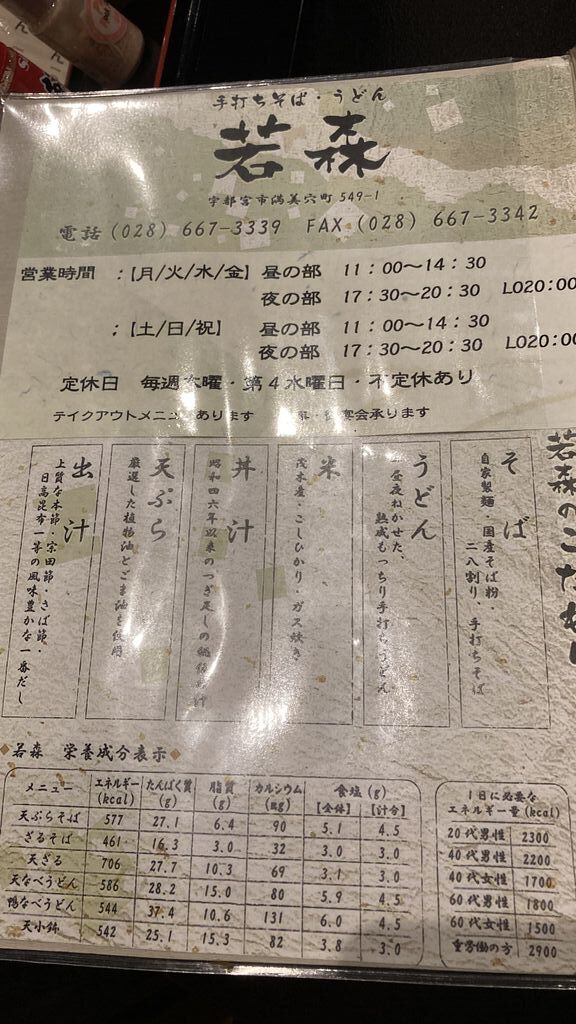 手打ちそば・うどん
若森
宇都宮市満美穴町 549-1
電話 (028) 667-3339 FAX (028) 667-3342
営業時間 :【月/火/水/金】 昼の部 11:00〜14:30
夜の部 17:30〜20:30 LO20:00
:【土/日/祝】 昼の部 11:00〜14:30
夜の部 17:30〜20:30 LO20:00
定休日 毎週木曜・第4水曜日・不定休あり
テイクアウトメニューあります 宴会承ります
若森のこだわり
そば
自家製麺・国産そば粉・
二八割り、手打ちそば
うどん
昼夜ねかせた、
熟成もっちり手打ちうどん
米
茂木産・こしひかり・ガス炊き
丼汁
昭和四六年以来のつぎ足しの
天ぷら
厳選した植物油とごま油を使用
出汁
上質な本節・宗田節・さば節・
日高昆布一等の風味豊かな一番だし
◆若森 栄養成分表示◆
メニュー エネルギー(kcal) たんぱく質(g) 脂質(g) カルシウム(mg) 食塩(g)【全体】【汁分】
天ぷらそば 577 27.1 6.4 90 5.1 4.5
ざるそば 461 16.3 3.0 32 3.0 3.0
天ざる 706 27.7 10.3 69 3.1 3.0
天なべうどん 586 28.2 15.0 80 5.9 4.5
鴨なべうどん 544 37.4 10.6 131 6.0 4.5
天小鉢 542 25.1 15.3 82 3.8 3.0
1日に必要な
エネルギー量(kcal)
20代男性 2300
40代男性 2200
40代女性 1700
60代男性 1800
60代女性 1500
重労働の方 2900